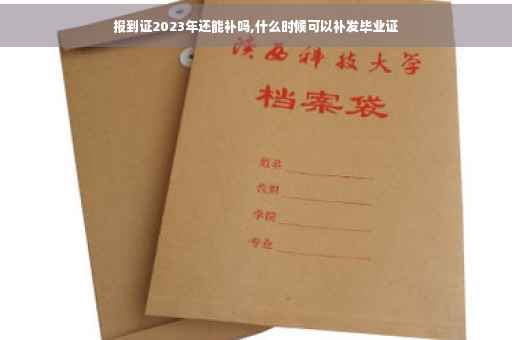 报到证2023年还能补吗,什么时候可以补发毕业证
陕西科技大学
档案袋
姓名
学院
专业